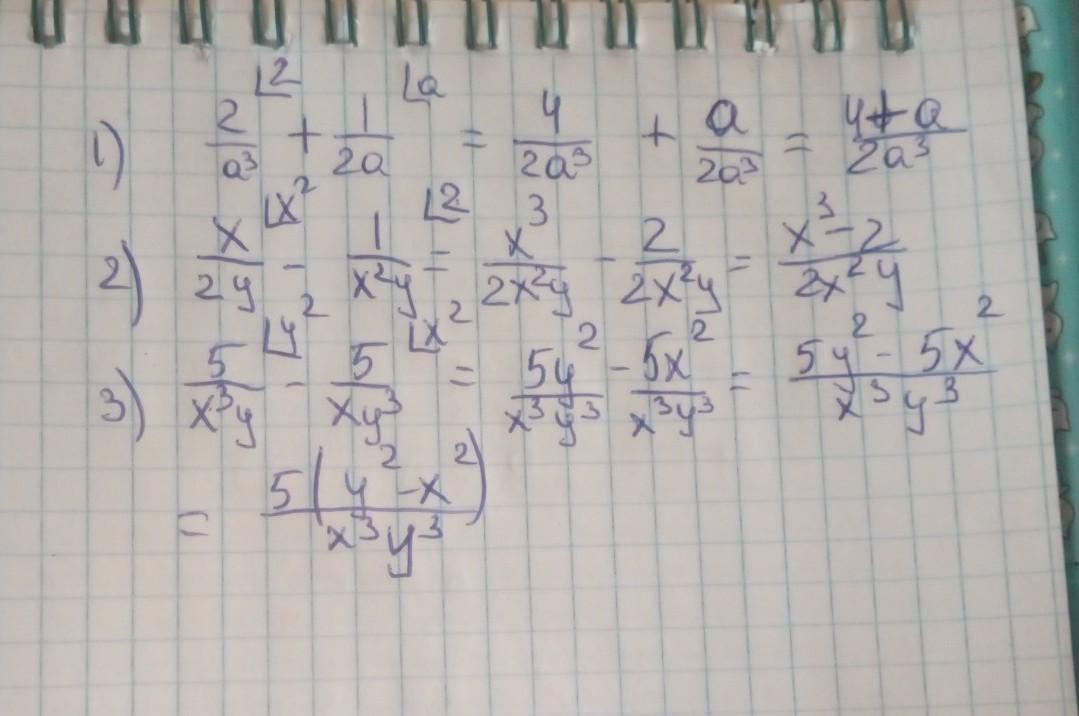 1) 2/a³ ⌊2 + 1/2a ⌊a = 4/2a³ + a/2a³ = 4+a/2a³
2) x/2y ⌊x² - 1/x²y ⌊2 = x³/2x²y - 2/2x²y = x³-2/2x²y
3) 5/x³y ⌊y² - 5/xy³ ⌊x² = 5y²/x³y³ - 5x²/x³y³ = 5y² - 5x²/x³y³
= 5(y²-x²)/x³y³